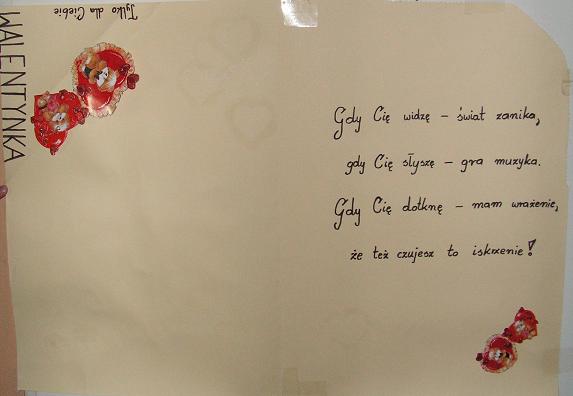 Tylko dla Ciebie
WALENTYNKA
Gdy Cię widzę – świat zanika,
gdy Cię słyszę – gra muzyka.
Gdy Cię dotknę – mam wrażenie,
że też czujesz to iskrzenie!